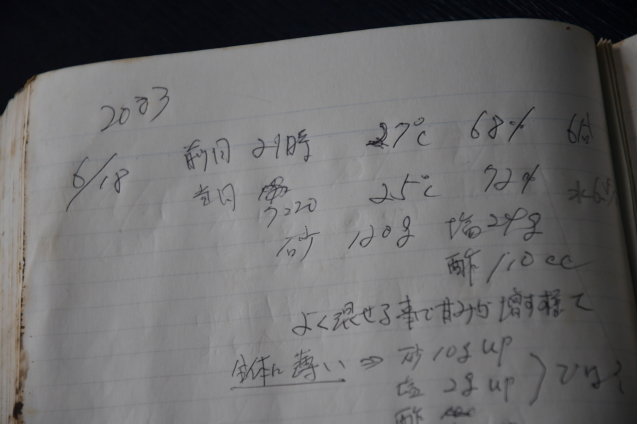 2003
6/18 前日 21時 27℃ 68%
当日 3:20 25℃ 72%
砂 120g 塩 24g
酢 110cc
よく混せる事で甘みが増す様で
全体に薄い ⇒ 砂 10g up
塩 2g up
酢